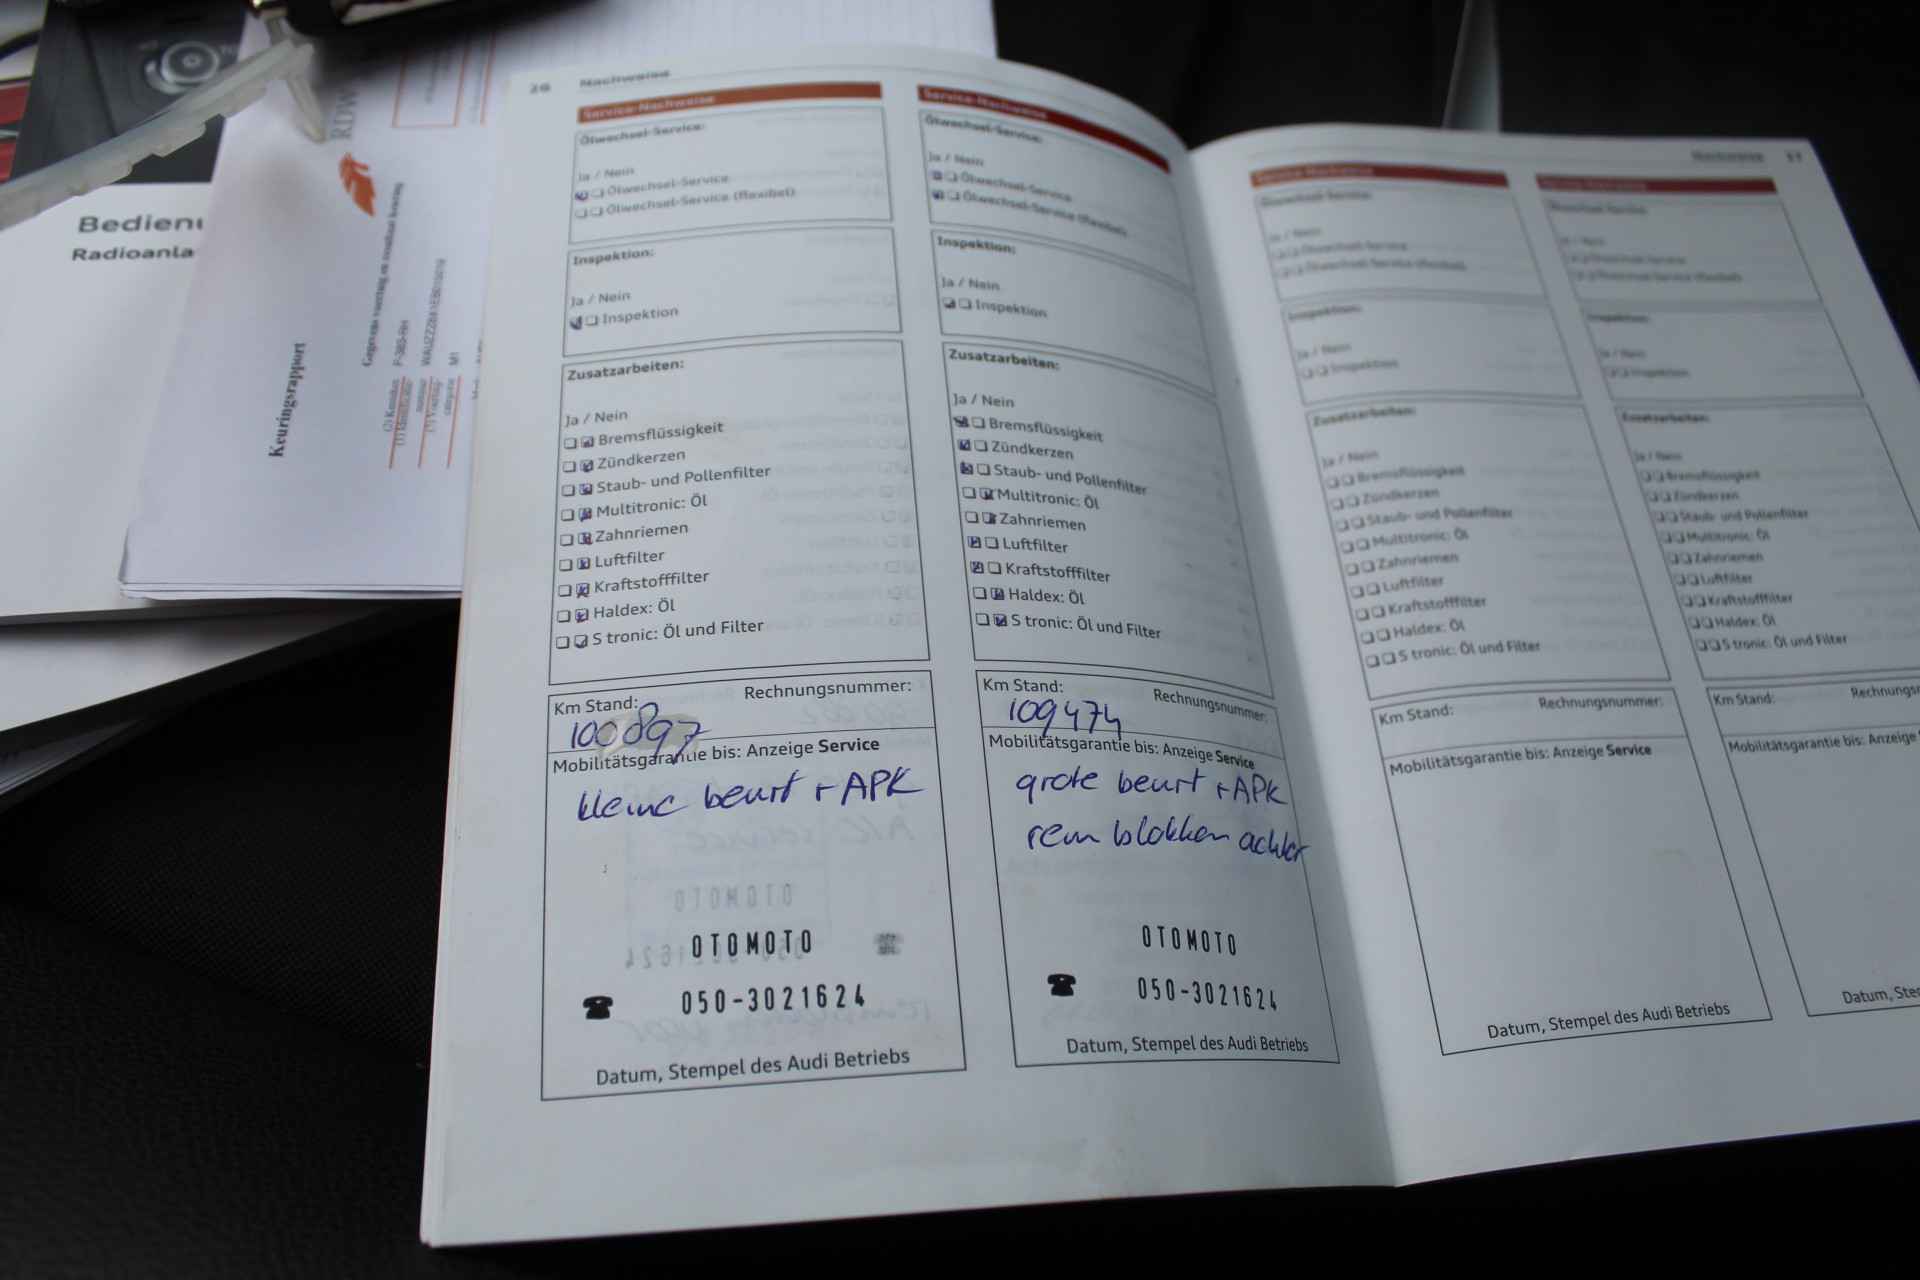 Bedienu
Radioanla
RDW
Keuringsrapport
Gegevens voertuig en resultaat keuring
M1
Nachweise
Service-Nachweise
Ölwechsel-Service:
Ja / Nein
Ölwechsel-Service
Ölwechsel-Service (flexibel)
Inspektion:
Ja / Nein
Inspektion
Zusatzarbeiten:
Ja / Nein
Bremsflüssigkeit
Zündkerzen
Staub- und Pollenfilter
Multitronic: Öl
Zahnriemen
Luftfilter
Kraftstofffilter
Haldex: Öl
S tronic: Öl und Filter
Km Stand: Rechnungsnummer:
100897
Mobilitätsgarantie bis: Anzeige Service
kleine beurt + APK
OTOMOTO
050-3021624
Datum, Stempel des Audi Betriebs
Service-Nachweise
Ölwechsel-Service:
Ja / Nein
Ölwechsel-Service
Ölwechsel-Service (flexibel)
Inspektion:
Ja / Nein
Inspektion
Zusatzarbeiten:
Ja / Nein
Bremsflüssigkeit
Zündkerzen
Staub- und Pollenfilter
Multitronic: Öl
Zahnriemen
Luftfilter
Kraftstofffilter
Haldex: Öl
S tronic: Öl und Filter
Km Stand: Rechnungsnummer:
109474
Mobilitätsgarantie bis: Anzeige Service
grote beurt + APK
rem blokken achter
OTOMOTO
050-3021624
Datum, Stempel des Audi Betriebs
Nachweise
Service-Nachweise
Ölwechsel-Service:
Ja / Nein
Ölwechsel-Service
Ölwechsel-Service (flexibel)
Inspektion:
Ja / Nein
Inspektion
Zusatzarbeiten:
Ja / Nein
Bremsflüssigkeit
Zündkerzen
Staub- und Pollenfilter
Multitronic: Öl
Zahnriemen
Luftfilter
Kraftstofffilter
Haldex: Öl
S tronic: Öl und Filter
Km Stand: Rechnungsnummer:
Mobilitätsgarantie bis: Anzeige Service
Datum, Stempel des Audi Betriebs
Service-Nachweise
Ölwechsel-Service:
Ja / Nein
Ölwechsel-Service
Ölwechsel-Service (flexibel)
Inspektion:
Ja / Nein
Inspektion
Zusatzarbeiten:
Ja / Nein
Bremsflüssigkeit
Zündkerzen
Staub- und Pollenfilter
Multitronic: Öl
Zahnriemen
Luftfilter
Kraftstofffilter
Haldex: Öl
S tronic: Öl und Filter
Km Stand: Rechnungsn
Mobilitätsgarantie bis: Anzeige
Datum, Ste